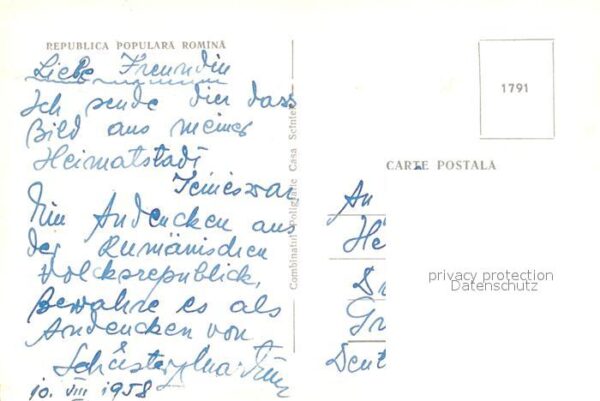 REPUBLICA POPULARĂ ROMÎNĂ
Liebe Freundin
Ich sende dier dass
Bild aus meiner
Heimatstadt
Temeswar
Ein Andencken aus
der Rumänischen
Volcksrepublick,
Bewahre es als
Andencken von
10. VIII 1958
Combinatul Poligrafic Casa Scînteii
1791
CARTE POSTALA
An
privacy protection
Datenschutz